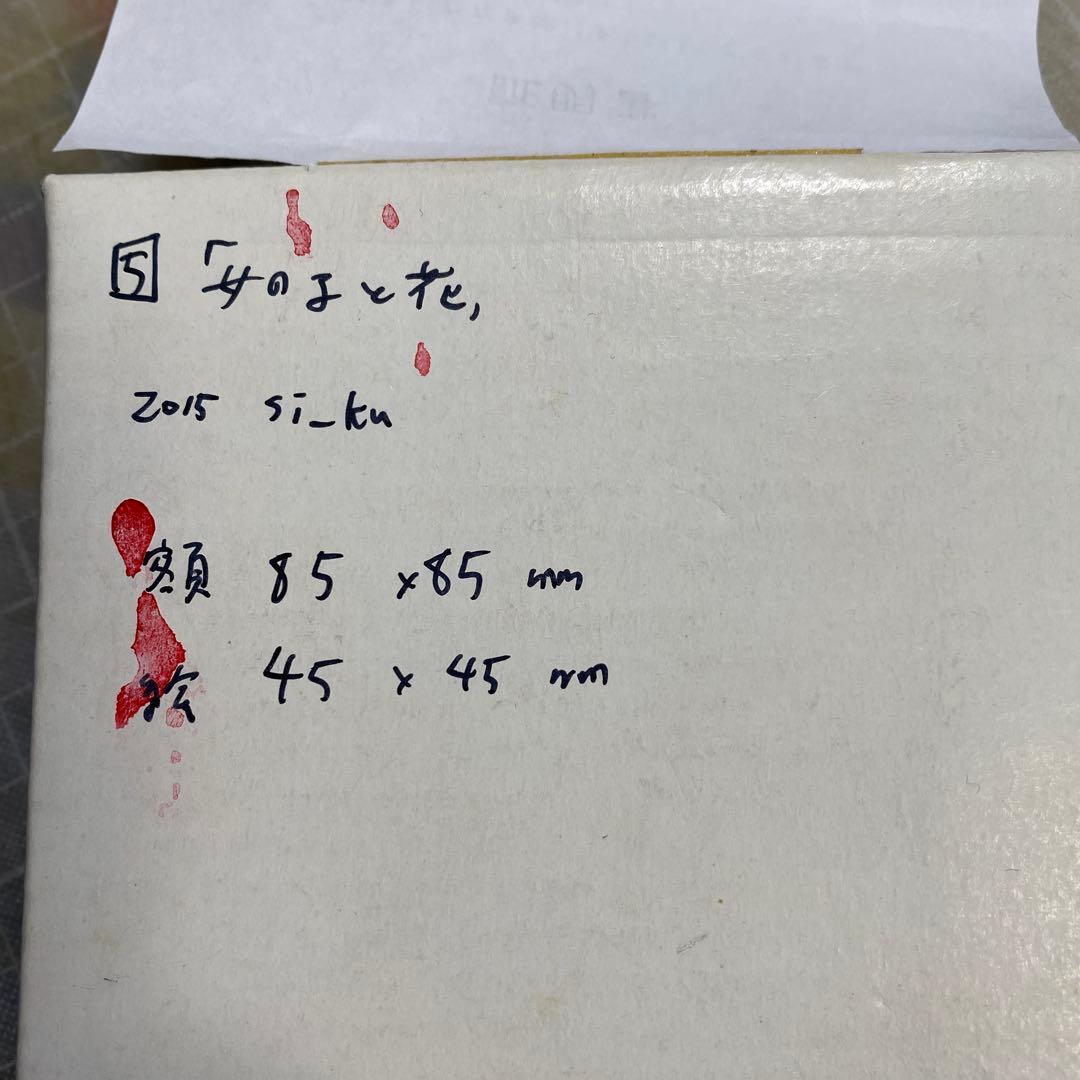 5 「女の子と花」
2015 si_ku
額 85 x85 mm
絵 45 x 45 mm